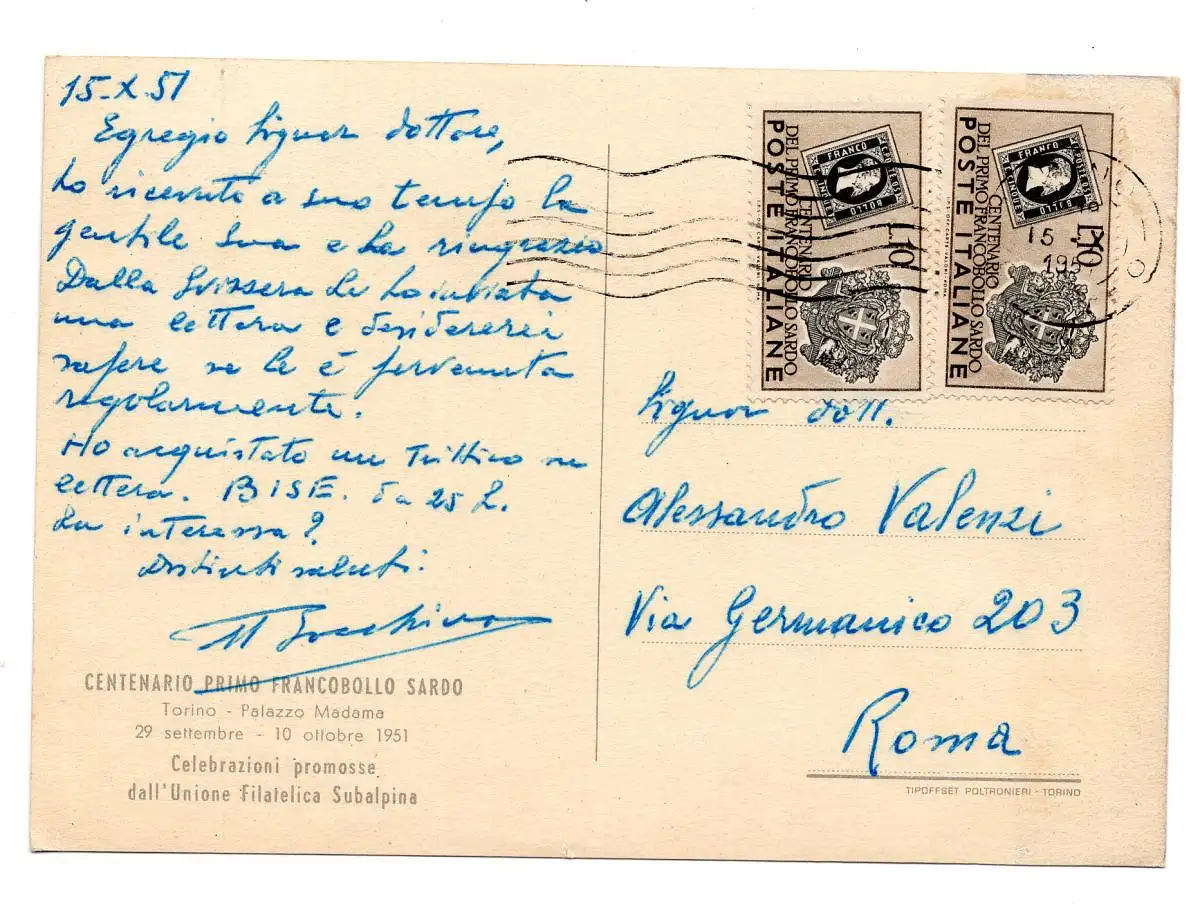 15-X-51
Egregio Signor dottore,
ho ricevuto a suo tempo la
gentile Sua e La ringrazio
Dalla Svizzera Le ho inviata
una lettera e desidererei
sapere se le è pervenuta
regolarmente.
Ho acquistato un Trittico su
lettera. BISE. da 25 L.
La interessa?
Distinti saluti.
CENTENARIO PRIMO FRANCOBOLLO SARDO
Torino - Palazzo Madama
29 settembre - 10 ottobre 1951
Celebrazioni promosse
dall'Unione Filatelica Subalpina
CENTENARIO
DEL PRIMO FRANCOBOLLO SARDO
POSTE ITALIANE
L10
FRANCO
BOLLO
CENTENARIO
DEL PRIMO FRANCOBOLLO SARDO
POSTE ITALIANE
L10
FRANCO
BOLLO
15
195
Signor dott.
Alessandro Valenzi
Via Germanico 203
Roma
TIPOFFSET POLTRONIERI - TORINO